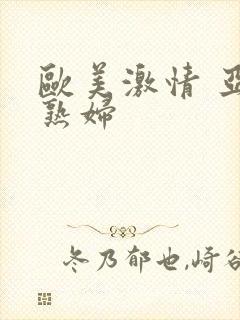 歐美激情 亞
熟婦
冬乃郁也,崎谷